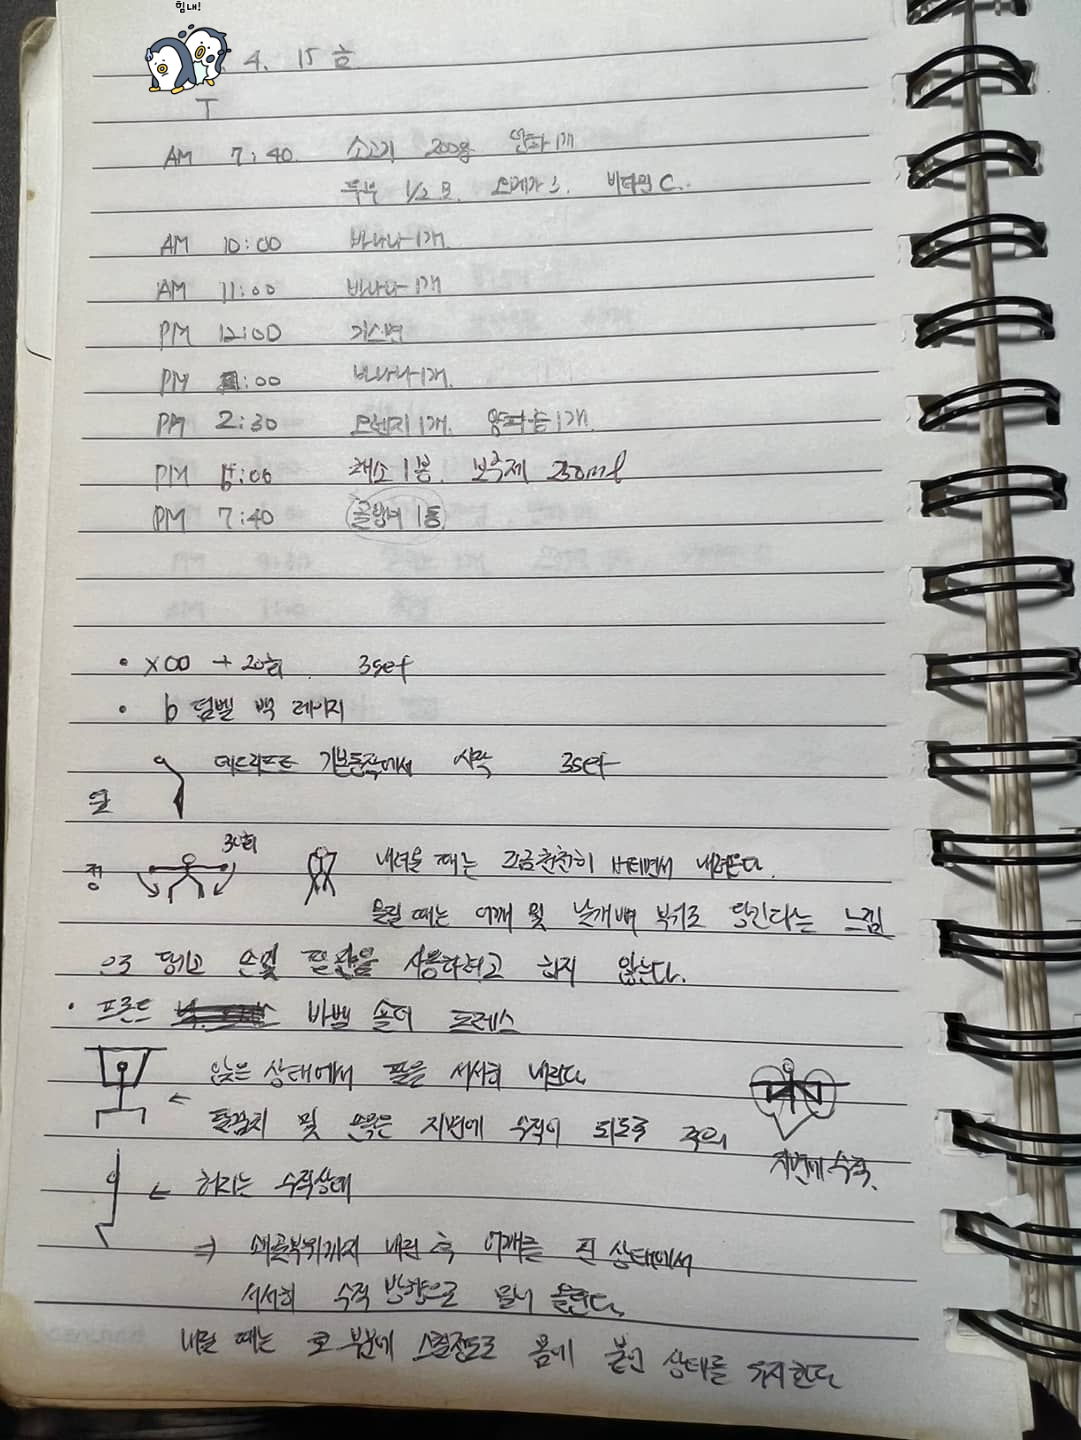 힘내!
4. 15 금
T
AM 7:40 소고기 200g 양파 1개
두부 1/2모. 오메가 3. 비타민 C.
AM 10:00 바나나 1개.
AM 11:00 바나나 1개
PM 12:00
PM 1:00 바나나 1개.
PM 2:30 오렌지 1개. 양파즙 1개.
PM :00 채소 1봉. 보충제 250ml
PM 7:40 1통
• 20회. 3set
• 덤벨 백 레이지
데드리프트 기본동작에서 시작 3set
30회
정 내려올 때는 조금 천천히 버티면서 내려온다.
올릴 때는 어깨 및 날개뼈 부위로 당긴다는 느낌
으로 당기고 손 및 팔 사용하려고 하지 않는다.
• 프론트 바벨 숄더 프레스
앉은 상태에서 팔을 서서히 내린다.
팔꿈치 및 손목은 지면에 수직이 되도록 주의
지면에 수직.
← 허리는 수직상태
⇒ 쇄골부위까지 내린 후 어깨를 핀 상태에서
서서히 수직 방향으로 밀어 올린다.
내릴 때는 코 부분에 스칠정도로 몸에 붙인 상태를 유지한다